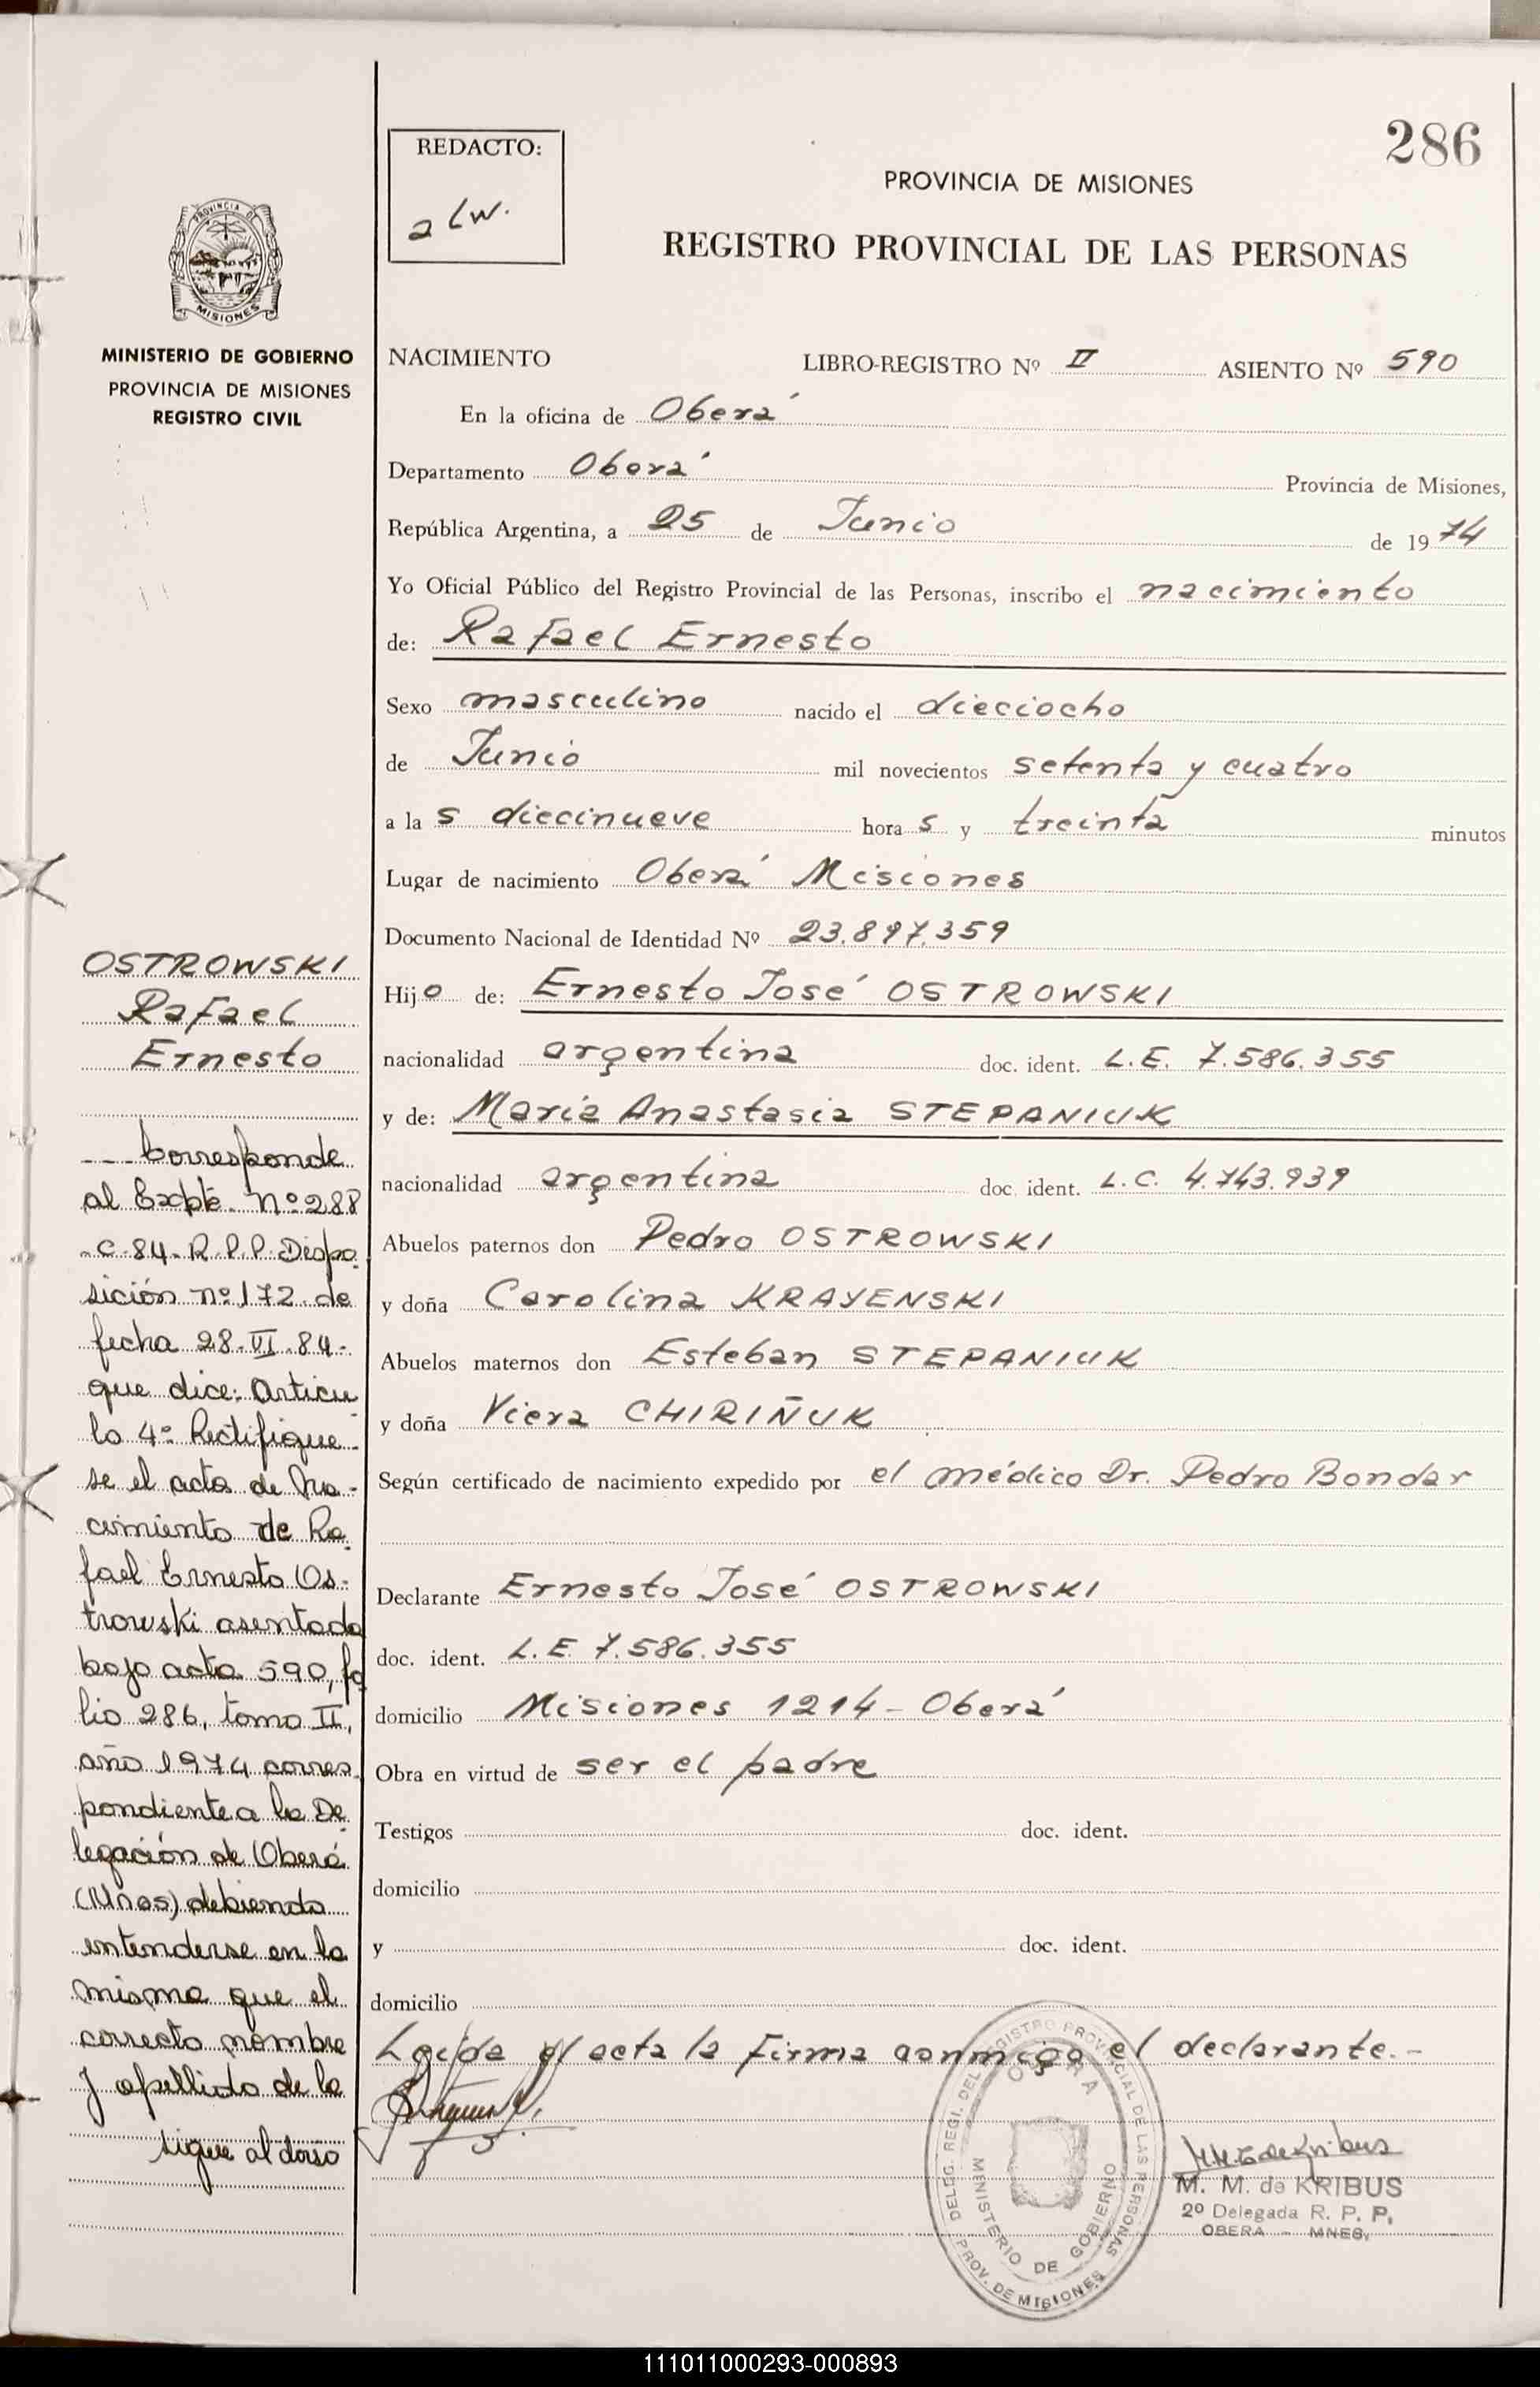 286
REDACTO:
PROVINCIA DE MISIONES
REGISTRO PROVINCIAL DE LAS PERSONAS
PROVINCIA DE
MISIONES
MINISTERIO DE GOBIERNO
PROVINCIA DE MISIONES
REGISTRO CIVIL
NACIMIENTO LIBRO-REGISTRO Nº II ASIENTO Nº 590
En la oficina de Oberá
Departamento Oberá Provincia de Misiones,
República Argentina, a 25 de Junio de 1974
Yo Oficial Público del Registro Provincial de las Personas, inscribo el nacimiento
de: Rafael Ernesto
Sexo masculino nacido el dieciocho
de Junio mil novecientos setenta y cuatro
a la s diecinueve hora s y treinta minutos
Lugar de nacimiento Oberá Misiones
Documento Nacional de Identidad Nº 23.897.359
Hijo de: Ernesto José OSTROWSKI
nacionalidad argentina doc. ident. L.E. 7.586.355
y de: María Anastasia STEPANIUK
nacionalidad argentina doc. ident. L.C. 4.743.939
Abuelos paternos don Pedro OSTROWSKI
y doña Carolina KRAYENSKI
Abuelos maternos don Esteban STEPANIUK
y doña Viera CHIRIÑUK
Según certificado de nacimiento expedido por el médico Dr. Pedro Bondar
Declarante Ernesto José OSTROWSKI
doc. ident. L.E. 7.586.355
domicilio Misiones 1214 - Oberá
Obra en virtud de ser el padre
Testigos doc. ident.
domicilio
y doc. ident.
domicilio
Leída el acta la firma conmigo el declarante.-
OSTROWSKI
Rafael
Ernesto
Corresponde
al Expte. Nº 288
-C-84-R.P.P. Dispo
sición nº 172 de
fecha 28-VI-84-
que dice: Artícu
lo 4º Rectifique
se el acta de Na-
cimiento de Ra
fael Ernesto Os-
trowski asentada
bajo acta 590, fo
lio 286, tomo II,
año 1974 corres
pondiente a la De
legación de Oberá
(Mnes) debiendo
entenderse en la
misma que el
correcto nombre
y apellido de la
sigue al dorso
DELEG. REGI. DEL REGISTRO PROVINCIAL DE LAS PERSONAS
OBERA
MINISTERIO DE GOBIERNO
PROV. DE MISIONES
M. M. de KRIBUS
2º Delegada R. P. P.
OBERA - MNES.
111011000293-000893